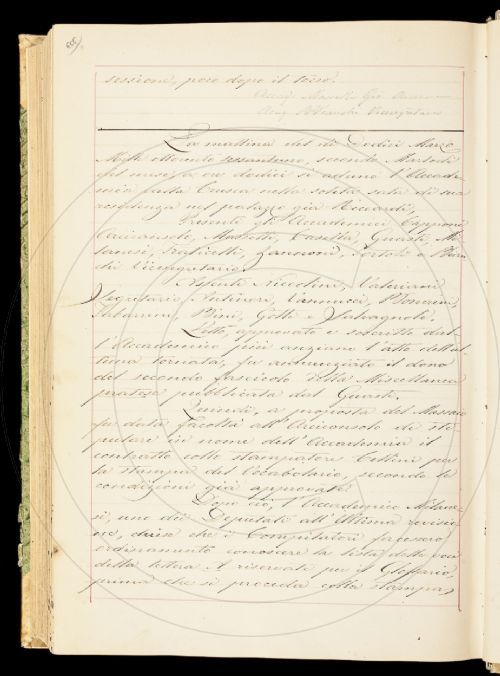 sessione, poco dopo il tocco.
La mattina del dì Dodici Marzo
Mille ottocento sessantuno, secondo Martedì
del mese, a ore dodici si adunò l'Accade-
mia della Crusca nella solita sala di sua
residenza nel palazzo già Riccardi,
Presenti gli Accademici Capponi
Arciconsolo, Casella, Guasti, Mi-
lanesi, Zannoni, Tortoli e
Vicesegretario.
Assenti Niccolini, Valeriani
Segretario Vannucci, Bonaini,
Tabarrini, Bini, Gotti e Salvagnoli.
Letto, approvato e soscritto dal-
l'Accademico più anziano l'atto dell'ul-
tima tornata, fu annunziato il dono
del secondo fascicolo della Miscellanea
pratese pubblicata dal Guasti.
Quindi, a proposta del Massaio
fu data facoltà all'Arciconsolo di sti-
pulare in nome dell'Accademia il
contratto collo stampatore Cellini per
la stampa del Vocabolario, secondo le
condizioni già approvate.
Dopo ciò, l'Accademico Milane-
si, uno dei Deputati all'Ultima revisio-
ne, chiese che i Compilatori facessero
ordinamento conoscere la lista delle voci
della lettera A riservate per il Glossario,
prima che si proceda colla stampa,